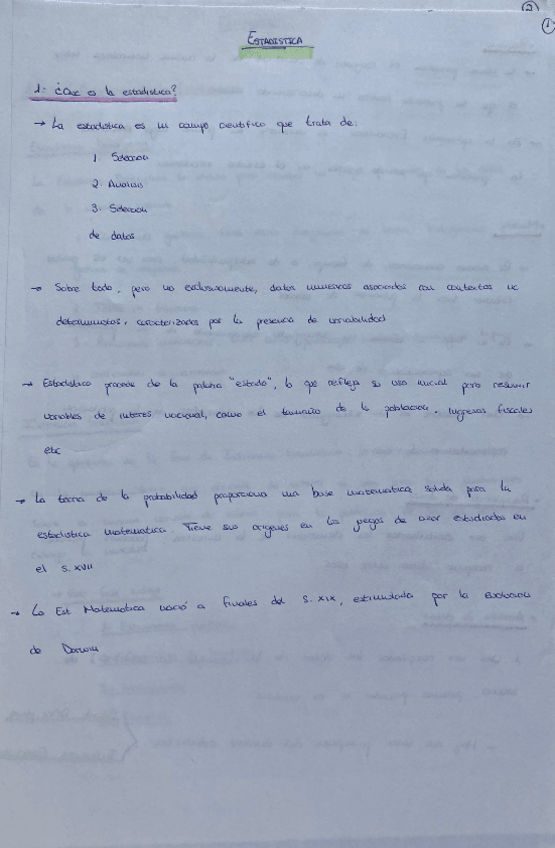 2
1
ESTADISTICA
1.- ¿Que es la estadistica?
→ La estadistica es un campo cientifico que trata de:
1. Seleccion
2. Analisis
3. Seleccion
de datos
→ Sobre todo, pero no exclusivamente, datos numericos asociados con contextos no
deterministas, caracterizados por la presencia de variabilidad
→ Estadistico procede de la palabra "estado", lo que refleja su uso inicial para resumir
variables de interes nacional, como el tamaño de la poblacion, ingresos fiscales
etc
→ La teoria de la probabilidad proporciona una base matematica solida para la
estadistica matematica. Tiene sus origenes en los juegos de azar estudiados en
el s. XVII
→ La Est Matematica nació a finales del s. XIX, estimulada por la Evolucion
de Darwin